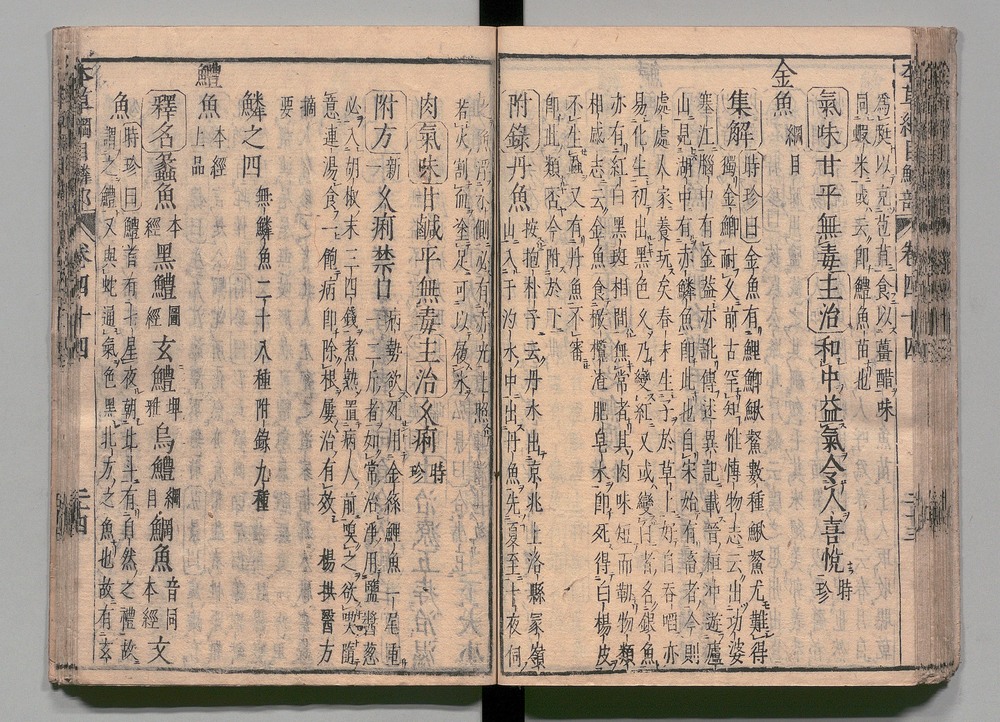 為庭以充也有食以薑醋味
同蝦米或云即鱧魚苗也
氣味甘平無毒主治和中益氣令人喜悅時珍
金魚綱目
集解時珍曰金魚有鯉鯽鰍鱉數種鰍鱉尤難得
獨金鯽耐久前古罕知惟博物志云出功婆
塞江腦中有金蓋亦訛傳述異記載晉桓冲遊廬
山見湖中有赤鱗魚即此也自宋始有畜者今則
處處人家養玩矣春末生子於草上好自吞啗亦
易化生初出黑色久乃變紅又或變白者名銀魚
亦有紅白黑斑相間無常者其肉味短而韌物類
相感志云金魚食橄欖渣肥皂水即死得白楊皮
不生蝨又有丹魚不審
即此類否今附於下
附錄丹魚按抱朴子云丹水出京兆上洛縣冢嶺
山入于汋水中出丹魚先夏至十夜伺
之魚浮水側必有赤光上照
若火割而塗足可以履水
肉氣味甘鹹平無毒主治久痢時珍
附方新一久痢禁口病勢欲死用金絲鯉魚一尾重
一二斤者如常治淨用鹽醬葱
必入胡椒末三四錢煮熟置病人前嗅之欲喫隨
意連湯食一飽病即除根屢治有效楊拱醫方
摘
要
鱗之四無鱗魚二十八種附錄九種
鱧魚本經上品
釋名蠡魚本經黑鱧圖經玄鱧埤雅烏鱧綱目鮦魚音同本經文
魚時珍曰鱧首有七星夜朝北斗有自然之禮故
謂之鱧又與蛇通氣色黑北方之魚也故有玄
本草綱目鱗部
卷四十四
二十四